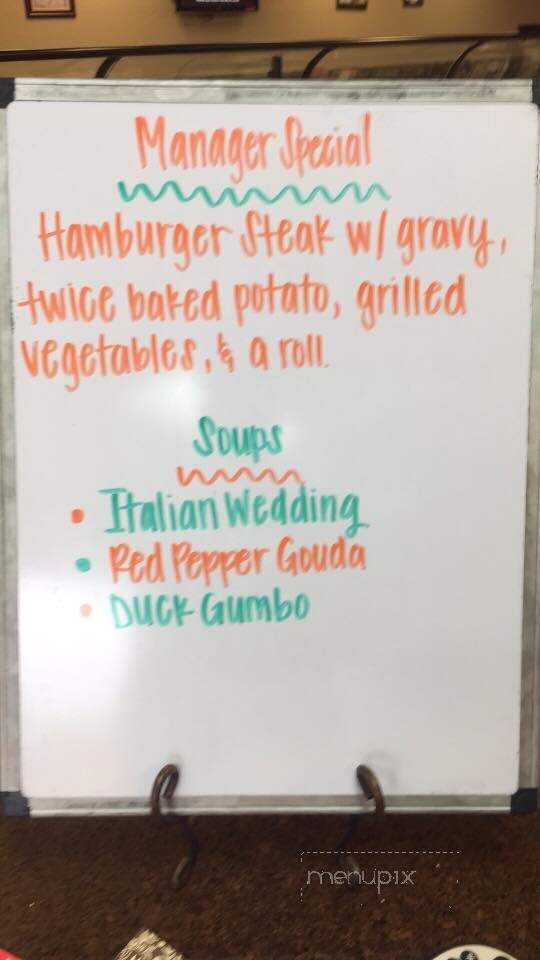 Manager Special
Hamburger Steak w/ gravy,
twice baked potato, grilled
vegetables, & a roll.
Soups
• Italian Wedding
• Red Pepper Gouda
• Duck Gumbo
menupix